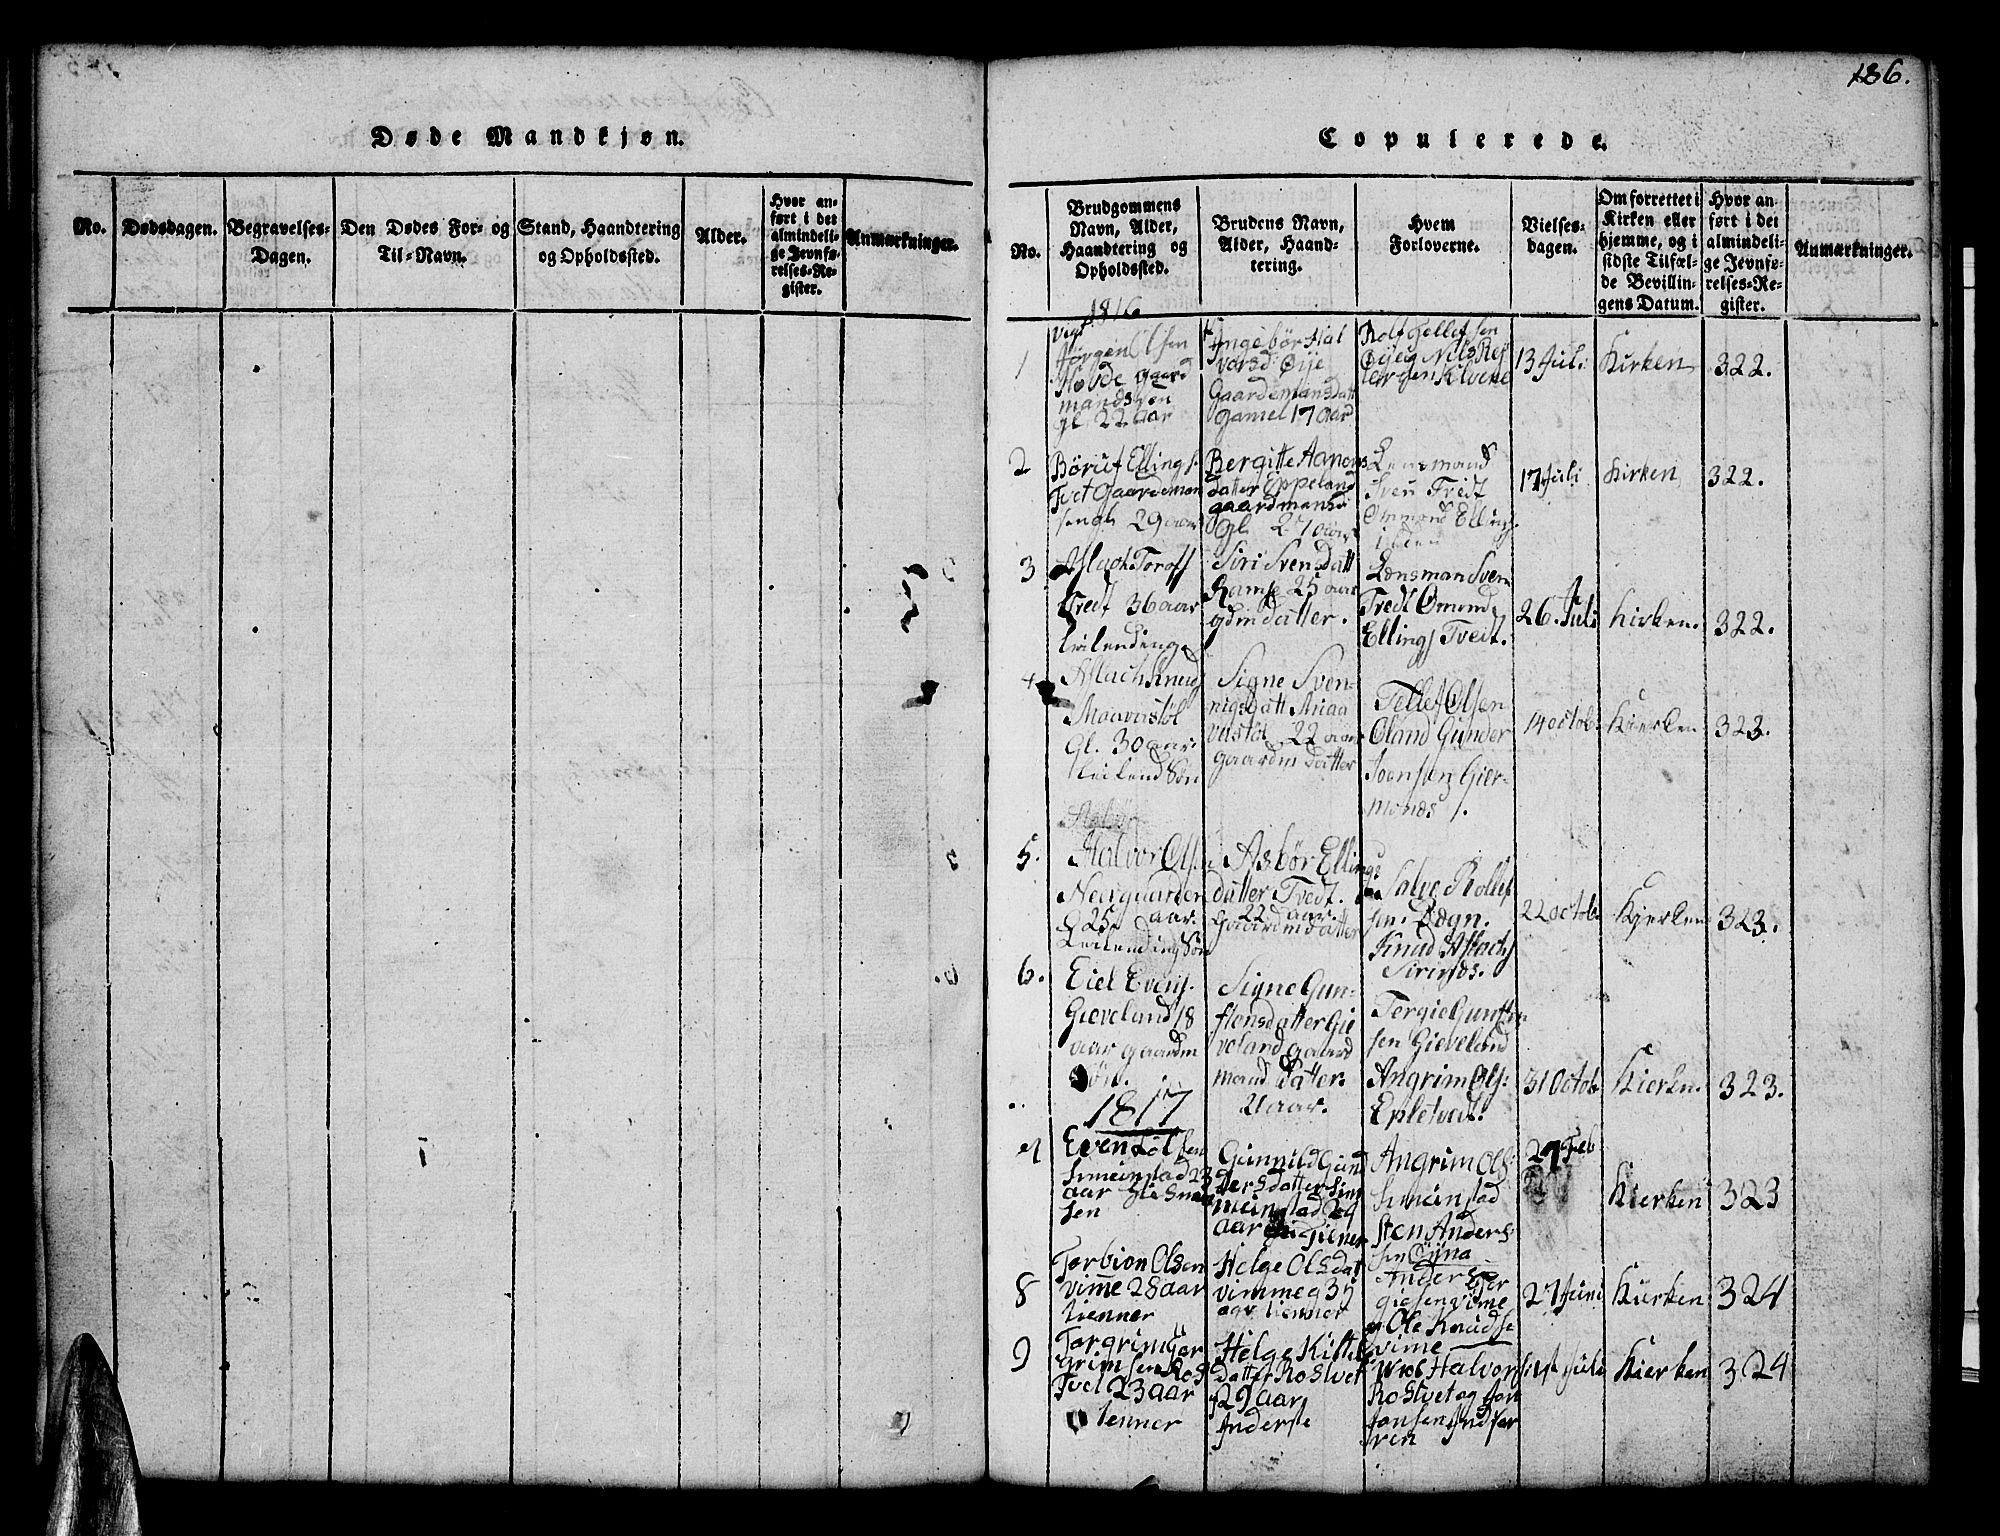 186.
Døde Mandkjøn.
No.
Dødsdagen.
Begravelses-
Dagen.
Den Dødes For- og
Til-Navn.
Stand, Haandtering
og Opholdssted.
Alder.
Hvor an-
ført i det
almindeli-
ge Jevnfø-
relses-Re-
gister.
Anmærkninger.
Copulerede.
No.
Brudgommens
Navn, Alder,
Haandtering og
Opholdssted.
Brudens Navn,
Alder, Haand-
tering.
Hvem
Forloverne.
Vielses-
dagen.
Om forrettet i
Kirken eller
hjemme, og i
sidste Tilfæl-
de Bevillin-
gens Datum.
Hvor an-
ført i det
almindeli-
ge Jevnfø-
relses-Re-
gister.
Anmærkninger.
1816
1
Jørgen Olsen
Hovde gaard
mandssøn
gl. 22 aar
Ingebør Hal
vorsd Øije
Gaardemansdatt
gamel 17 aar
Rolf Tellefsen
Øije og Nils
13 Juli
Kirken
322.
2
Børuf Ellings
Tvet Gaardeman
sen gl. 29 aar
Bergitte Aamons
datter Eppeland
gaardmansd
gl. 27 aar
Lensmand
Sven Tredt
Ommond Ellings.
17 Juli
Kirken
322.
3
Aslach Torafs
Tredt 36 aar
leilending
Siri Svensdatt
Ramse 25 aar
gdmdatter.
Lensman Sven
Tredt Omund
Ellings Tveit.
26. Juli
kirken.
322.
4
Aslach Knuds
Maaverstøl
Gl. 30 aar.
Leilend Søn
Signe Sven-
nigsdatt Maa
verstøl 22 aar
gaardm datter
Tellef Olsen
Oland Gunder
Joensen Gier-
monds
14 octob.
Kierken
323.
5.
Halvor Ols
Neerguarden
25 aar.
Leilending Søn
Asbør Ellings
datter Tvedt.
22 aar.
Gaardmdatter
Salve Rollef
sen Dægn.
Knud Aslachs
22 octob.
Kjerken
323.
6.
Eiel Evens.
Gieveland 18
aar gaardm
Søn.
Signe Gun-
stensdatter Gie
veland gaard
mand datter.
21 aar.
Tergie Gunsten
sen Gieveland
Angrim Ols:
Epletvedt.
31 Octob
Kierken.
323.
1817
7
Even Olsen
Simeinstad 23
aar
sen
Gunnild Gund
ersdatter Sim
meinstad 24
aar Tiener
Angrim Ols:
Simeinstad
Sten Anders
sen
27 Feb
Kierken
323
8
Torbion Olsen
Vimme 28 aar
tienner
Helge Olsdat
vimme 35
aar tienner
Anders Ter
giesen Vime
og Ole Knudse
vime
27 Juni
Kierken
324
9
Torgrim Tor
grimsen Ros
Tvet 23 aar
tenner
Helge Kittils
datter Rostvet
29 aar
Halvors
Rostvet og Jon
Jonsen
Juli
Kierken
324